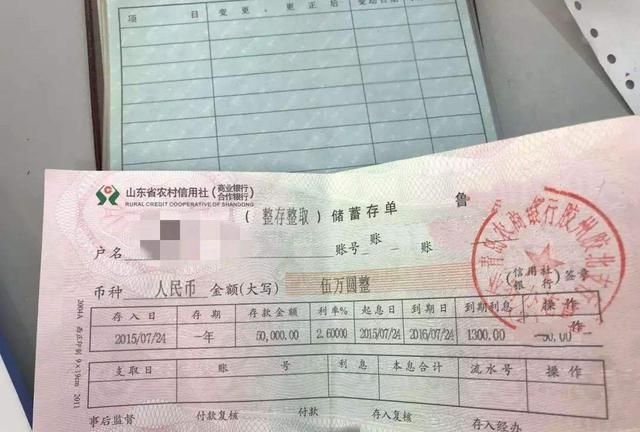 项 目 变更、更正后 变动日期
山东省农村信用社(商业银行 合作银行)
RURAL CREDIT COOPERATIVE OF SHANDONG
(整存整取)储蓄存单 鲁
户名 账号 账
(信用社 银行)签章
币种 人民币 金额(大写) 伍万圆整
存入日 存期 存款金额 利率% 起息日 到期日 到期利息 操作
2015/07/24 一年 50,000.00 2.60000 2015/07/24 2016/07/24 1300.00
支取日 账 号 利息 本息合计 流水号 操作
事后监督 付款复核 付款 存入复核 存入经办
2004A 9×19cm 2011